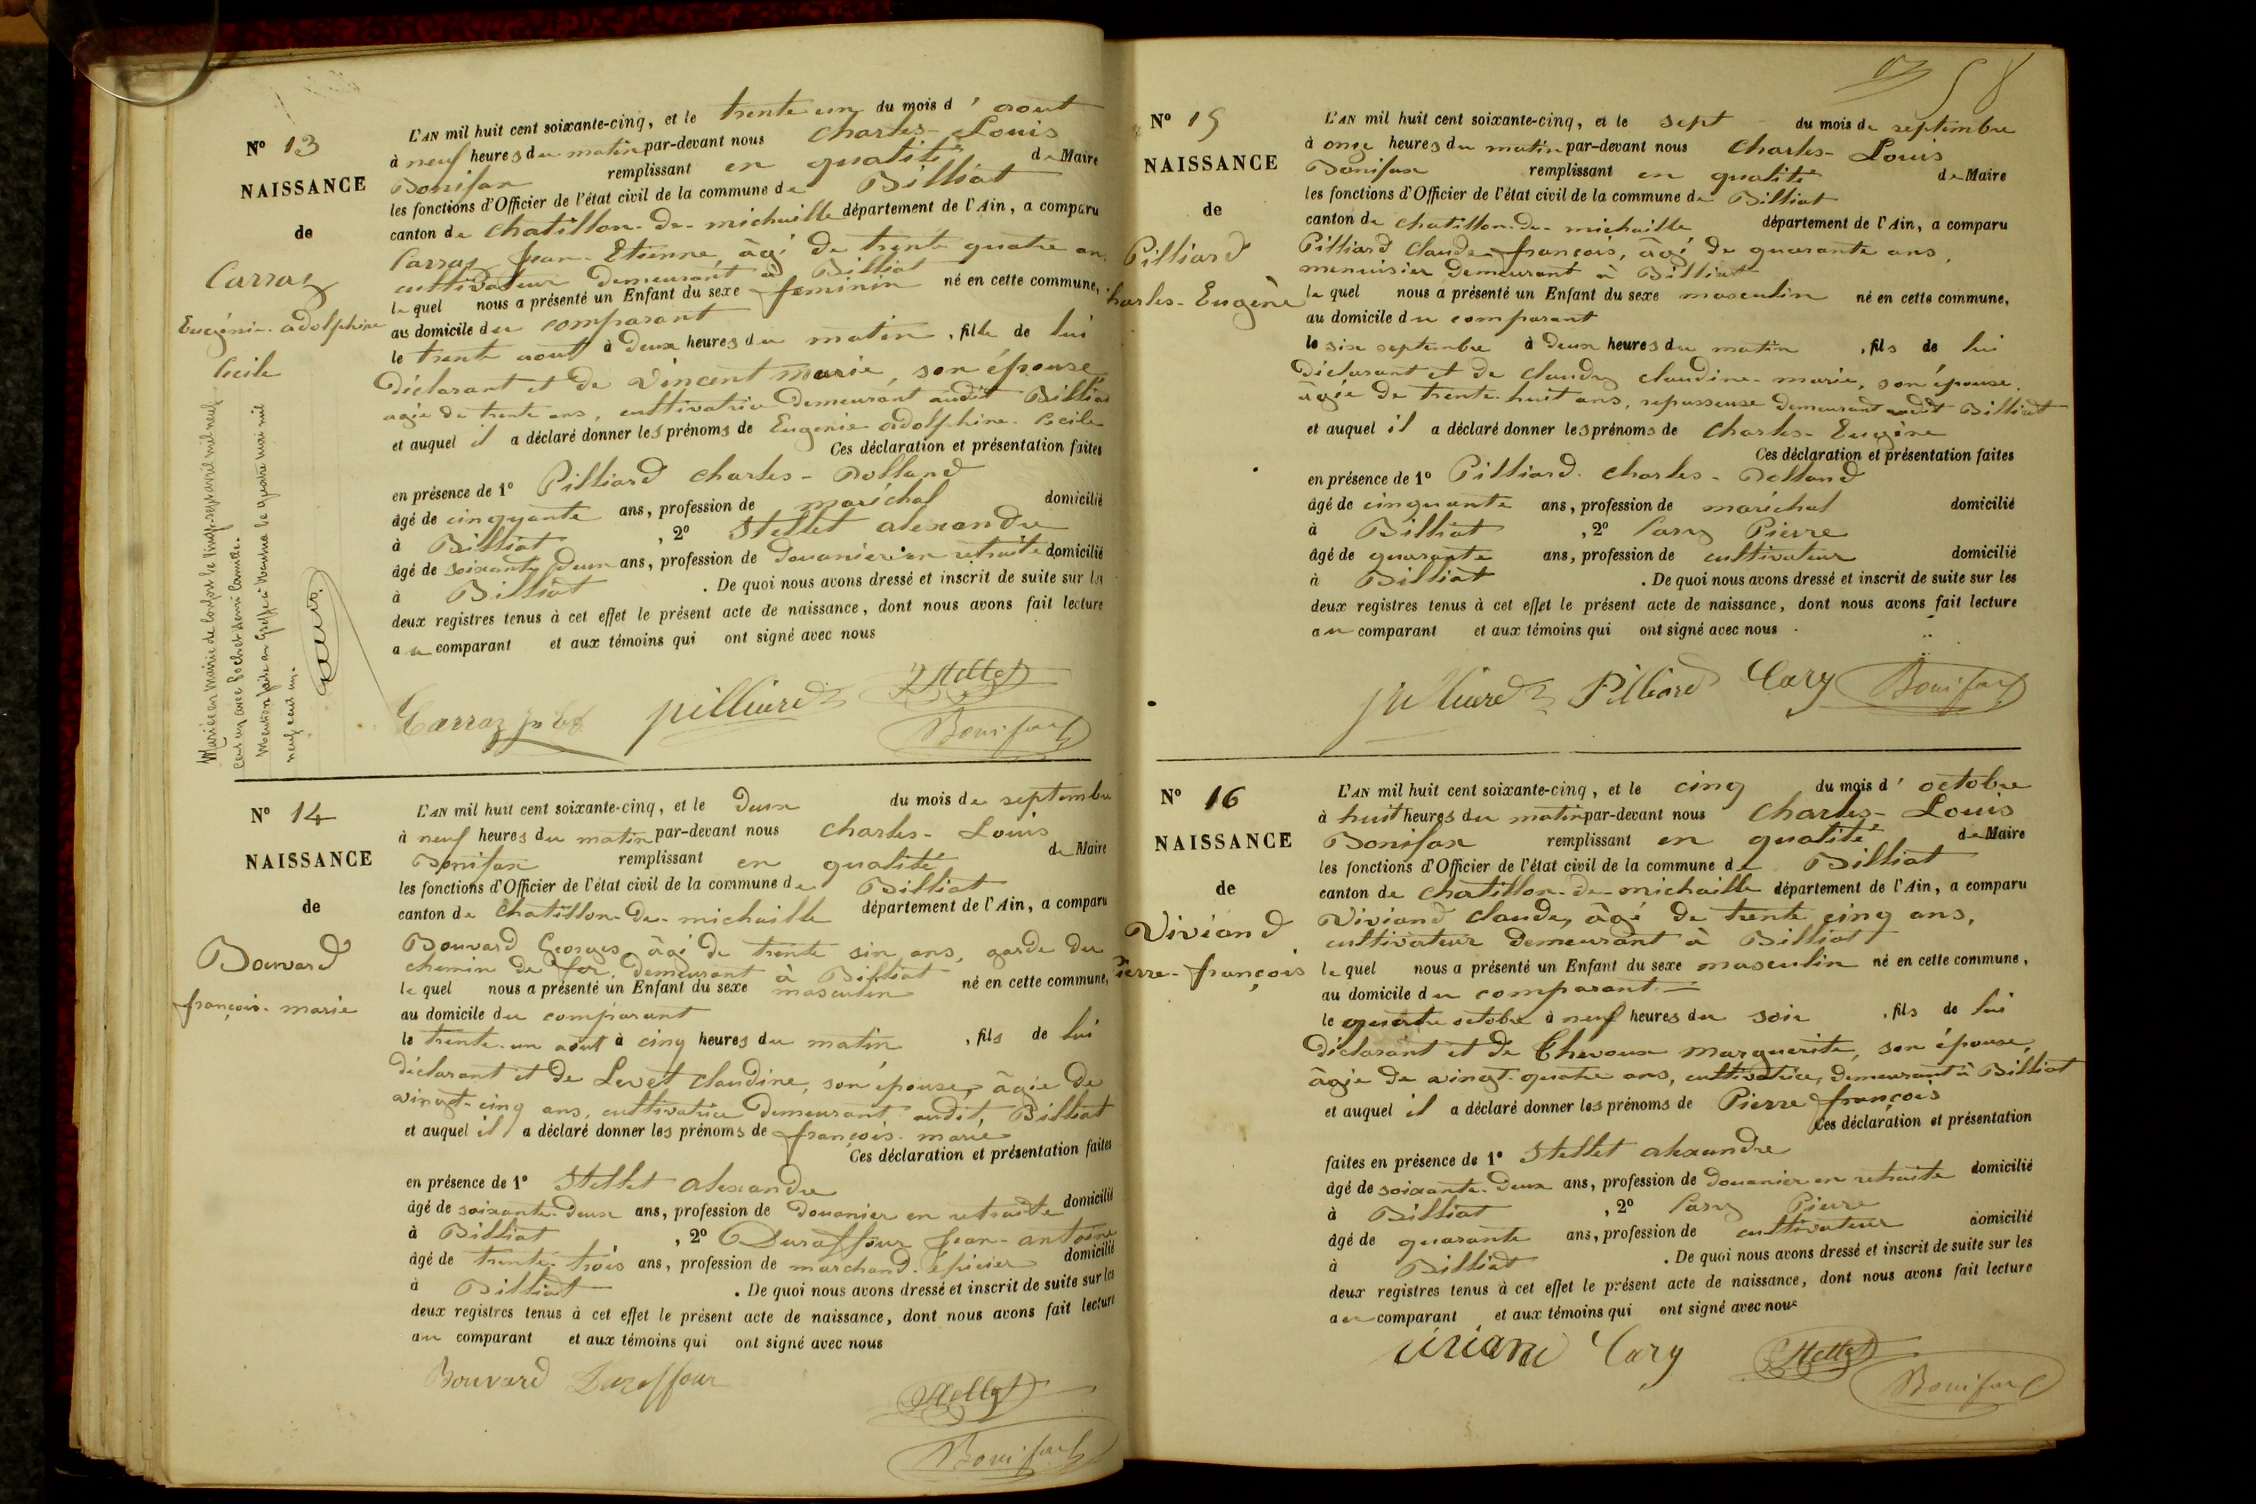 N° 13
NAISSANCE
de
Carraz
Eugénie-adolphine
Cécile
L'AN mil huit cent soixante-cinq, et le trente un du mois d'aout
à neuf heures du matin par-devant nous Charles-Louis
Bonifax remplissant en qualité de Maire
les fonctions d'Officier de l'état civil de la commune de Billiat
canton de Chatillon-de-michaille département de l'Ain, a comparu
Carraz Jean-Etienne, âgé de trente quatre an
cultivateur demeurant à Billiat
lequel nous a présenté un Enfant du sexe feminin né en cette commune,
au domicile du comparant
le trente aout à deux heures du matin, fille de lui
déclarant et de Vincent marie, son épouse,
agée de trente ans, cultivatrice demeurant audit Billiat
et auquel il a déclaré donner les prénoms de Eugénie adolphine-Cécile
Ces déclaration et présentation faites
en présence de 1° Pilliard Charles-Rolland
âgé de cinquante ans, profession de maréchal domicilié
à Billiat, 2° Stellet alexandre
âgé de soixante deux ans, profession de douanier en retraite domicilié
à Billiat. De quoi nous avons dressé et inscrit de suite sur les
deux registres tenus à cet effet le présent acte de naissance, dont nous avons fait lecture
au comparant et aux témoins qui ont signé avec nous
Carraz pilliard Stellet
Bonifax
Mariée en Mairie de le vingt-sept avril mil neuf
cent un avec Bochet Henri Camille.
Mention faite au Greffe à Nantua le quatre mai mil
neuf cent un.
N° 14
NAISSANCE
de
Bouvard
françois-marie
L'AN mil huit cent soixante-cinq, et le deux du mois de septembre
à neuf heures du matin par-devant nous Charles-Louis
Bonifax remplissant en qualité de Maire
les fonctions d'Officier de l'état civil de la commune de Billiat
canton de Chatillon-de-michaille département de l'Ain, a comparu
Bouvard Georges, âgé de trente six ans, garde du
chemin de fer, demeurant à Billiat
lequel nous a présenté un Enfant du sexe masculin né en cette commune,
au domicile du comparant
le trente-un aout à cinq heures du matin, fils de lui
déclarant et de Levet Claudine, son épouse, âgée de
vingt-cinq ans, cultivatrice demeurant audit Billiat
et auquel il a déclaré donner les prénoms de françois-marie
Ces déclaration et présentation faites
en présence de 1° Stellet alexandre
âgé de soixante-deux ans, profession de douanier en retraite domicilié
à Billiat, 2° Duraffour Jean-antoine
âgé de trente-trois ans, profession de marchand-épicier domicilié
à Billiat. De quoi nous avons dressé et inscrit de suite sur les
deux registres tenus à cet effet le présent acte de naissance, dont nous avons fait lecture
au comparant et aux témoins qui ont signé avec nous
Bouvard Duraffour Stellet
Bonifax
58
N° 15
NAISSANCE
de
Pilliard
harles-Eugène
L'AN mil huit cent soixante-cinq, et le sept du mois de septembre
à onze heures du matin par-devant nous Charles-Louis
Bonifax remplissant en qualité de Maire
les fonctions d'Officier de l'état civil de la commune de Billiat
canton de Chatillon-de-michaille département de l'Ain, a comparu
Pilliard Claude-françois, âgé de quarante ans,
menuisier demeurant à Billiat
lequel nous a présenté un Enfant du sexe masculin né en cette commune,
au domicile du comparant
le six septembre à deux heures du matin, fils de lui
déclarant et de Claudy claudine-marie, son épouse,
âgée de trente-huit ans, repasseuse demeurant audit Billiat
et auquel il a déclaré donner les prénoms de Charles-Eugène
Ces déclaration et présentation faites
en présence de 1° Pilliard Charles-Rolland
âgé de cinquante ans, profession de maréchal domicilié
à Billiat, 2° Cary Pierre
âgé de quarante ans, profession de cultivateur domicilié
à Billiat. De quoi nous avons dressé et inscrit de suite sur les
deux registres tenus à cet effet le présent acte de naissance, dont nous avons fait lecture
au comparant et aux témoins qui ont signé avec nous.
pilliard Pilliard Cary Bonifax
N° 16
NAISSANCE
de
Viviand
ierre-françois
L'AN mil huit cent soixante-cinq, et le cinq du mois d'octobre
à huit heures du matin par-devant nous Charles-Louis
Bonifax remplissant en qualité de Maire
les fonctions d'Officier de l'état civil de la commune de Billiat
canton de Chatillon-de-michaille département de l'Ain, a comparu
Viviand Claude, âgé de trente cinq ans,
cultivateur demeurant à Billiat
lequel nous a présenté un Enfant du sexe masculin né en cette commune,
au domicile du comparant
le quatre octobre à neuf heures du soir, fils de lui
déclarant et de Chevoux Marguerite, son épouse,
âgée de vingt-quatre ans, cultivatrice, demeurant à Billiat
et auquel il a déclaré donner les prénoms de Pierre françois
Ces déclaration et présentation
faites en présence de 1° Stellet alexandre
âgé de soixante-deux ans, profession de douanier en retraite domicilié
à Billiat, 2° Cary Pierre
âgé de quarante ans, profession de cultivateur domicilié
à Billiat. De quoi nous avons dressé et inscrit de suite sur les
deux registres tenus à cet effet le présent acte de naissance, dont nous avons fait lecture
au comparant et aux témoins qui ont signé avec nous
viviand Cary Stellet
Bonifax